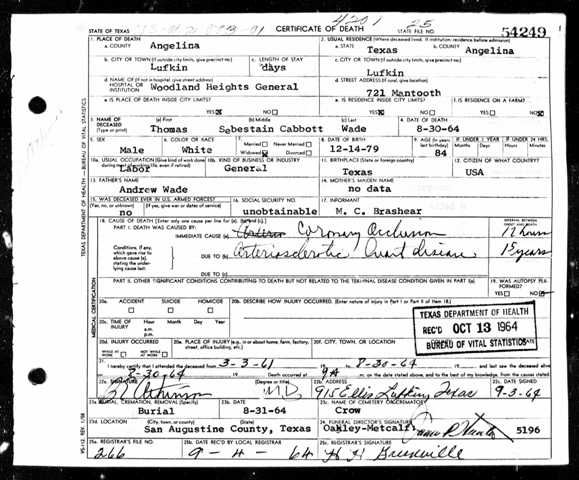 4201 25
STATE OF TEXAS CERTIFICATE OF DEATH STATE FILE NO. 54249
1. PLACE OF DEATH 2. USUAL RESIDENCE (Where deceased lived. If institution: residence before admission)
a. COUNTY Angelina a. STATE Texas b. COUNTY Angelina
b. CITY OR TOWN (If outside city limits, give precinct no.) Lufkin c. LENGTH OF STAY days c. CITY OR TOWN (If outside city limits, give precinct no.) Lufkin
d. NAME OF (If not in hospital, give street address) HOSPITAL OR INSTITUTION Woodland Heights General d. STREET ADDRESS (If rural, give location) 721 Mantooth
e. IS PLACE OF DEATH INSIDE CITY LIMITS? YES NO e. IS RESIDENCE INSIDE CITY LIMITS? YES NO f. IS RESIDENCE ON A FARM? YES NO
3. NAME OF DECEASED (Type or print) (a) First Thomas (b) Middle Sebestain Cabbott (c) Last Wade 4. DATE OF DEATH 8-30-64
5. SEX Male 6. COLOR OR RACE White 7. Married Never Married Widowed Divorced 8. DATE OF BIRTH 12-14-79 9. AGE 84 IF UNDER 1 YEAR Months Days IF UNDER 24 HRS. Hours Min.
10a. USUAL OCCUPATION (Give kind of work done during most of working life, even if retired) Labor 10b. KIND OF BUSINESS OR INDUSTRY General 11. BIRTHPLACE (State or foreign country) Texas 12. CITIZEN OF WHAT COUNTRY? USA
13. FATHER'S NAME Andrew Wade 14. MOTHER'S MAIDEN NAME no data
15. WAS DECEASED EVER IN U.S. ARMED FORCES? (Yes, no, or unknown) (If yes, give war or dates of service) no 16. SOCIAL SECURITY NO. unobtainable 17. INFORMANT M. C. Brashear
18. CAUSE OF DEATH [Enter only one cause per line for (a), (b), and (c).] INTERVAL BETWEEN ONSET AND DEATH
PART I. DEATH WAS CAUSED BY:
IMMEDIATE CAUSE (a) Coronary Occlusion 72 hours
Conditions, if any, which gave rise to above cause (a), stating the underlying cause last. DUE TO (b) Arteriosclerotic Heart disease 15 years
DUE TO (c)
PART II. OTHER SIGNIFICANT CONDITIONS CONTRIBUTING TO DEATH BUT NOT RELATED TO THE TERMINAL DISEASE CONDITION GIVEN IN PART I(a) 19. WAS AUTOPSY PERFORMED? YES NO
20a. ACCIDENT SUICIDE HOMICIDE 20b. DESCRIBE HOW INJURY OCCURRED. (Enter nature of injury in Part I or Part II of item 18.)
20c. TIME OF INJURY Hour Month Day Year a.m. p.m.
TEXAS DEPARTMENT OF HEALTH
REC'D OCT 13 1964
BUREAU OF VITAL STATISTICS
20d. INJURY OCCURRED WHILE AT WORK NOT WHILE AT WORK 20e. PLACE OF INJURY (e.g. in or about home, farm, factory, street, office building, etc.) 20f. CITY, TOWN, OR LOCATION COUNTY STATE
21. I hereby certify that I attended the deceased from 3-3-61 19 to 8-30-64 19 and last saw the deceased alive
on 8-30-64 19 Death occurred at m. on the date stated above, and to the best of my knowledge, from the causes stated.
22a. SIGNATURE (Degree or title) M.D. 22b. ADDRESS 915 Ellis Lufkin, Texas 22c. DATE SIGNED 9-3-64
23a. BURIAL, CREMATION, REMOVAL (Specify) Burial 23b. DATE 8-31-64 23c. NAME OF CEMETERY OR CREMATORY Crow
23d. LOCATION (City, town, or county) (State) San Augustine County, Texas 24. FUNERAL DIRECTOR'S SIGNATURE Oakley-Metcalf 5196
25a. REGISTRAR'S FILE NO. 266 25b. DATE REC'D BY LOCAL REGISTRAR 9-4-64 25c. REGISTRAR'S SIGNATURE
TEXAS DEPARTMENT OF HEALTH — BUREAU OF VITAL STATISTICS
MEDICAL CERTIFICATION
VS-112 REV. 1/58